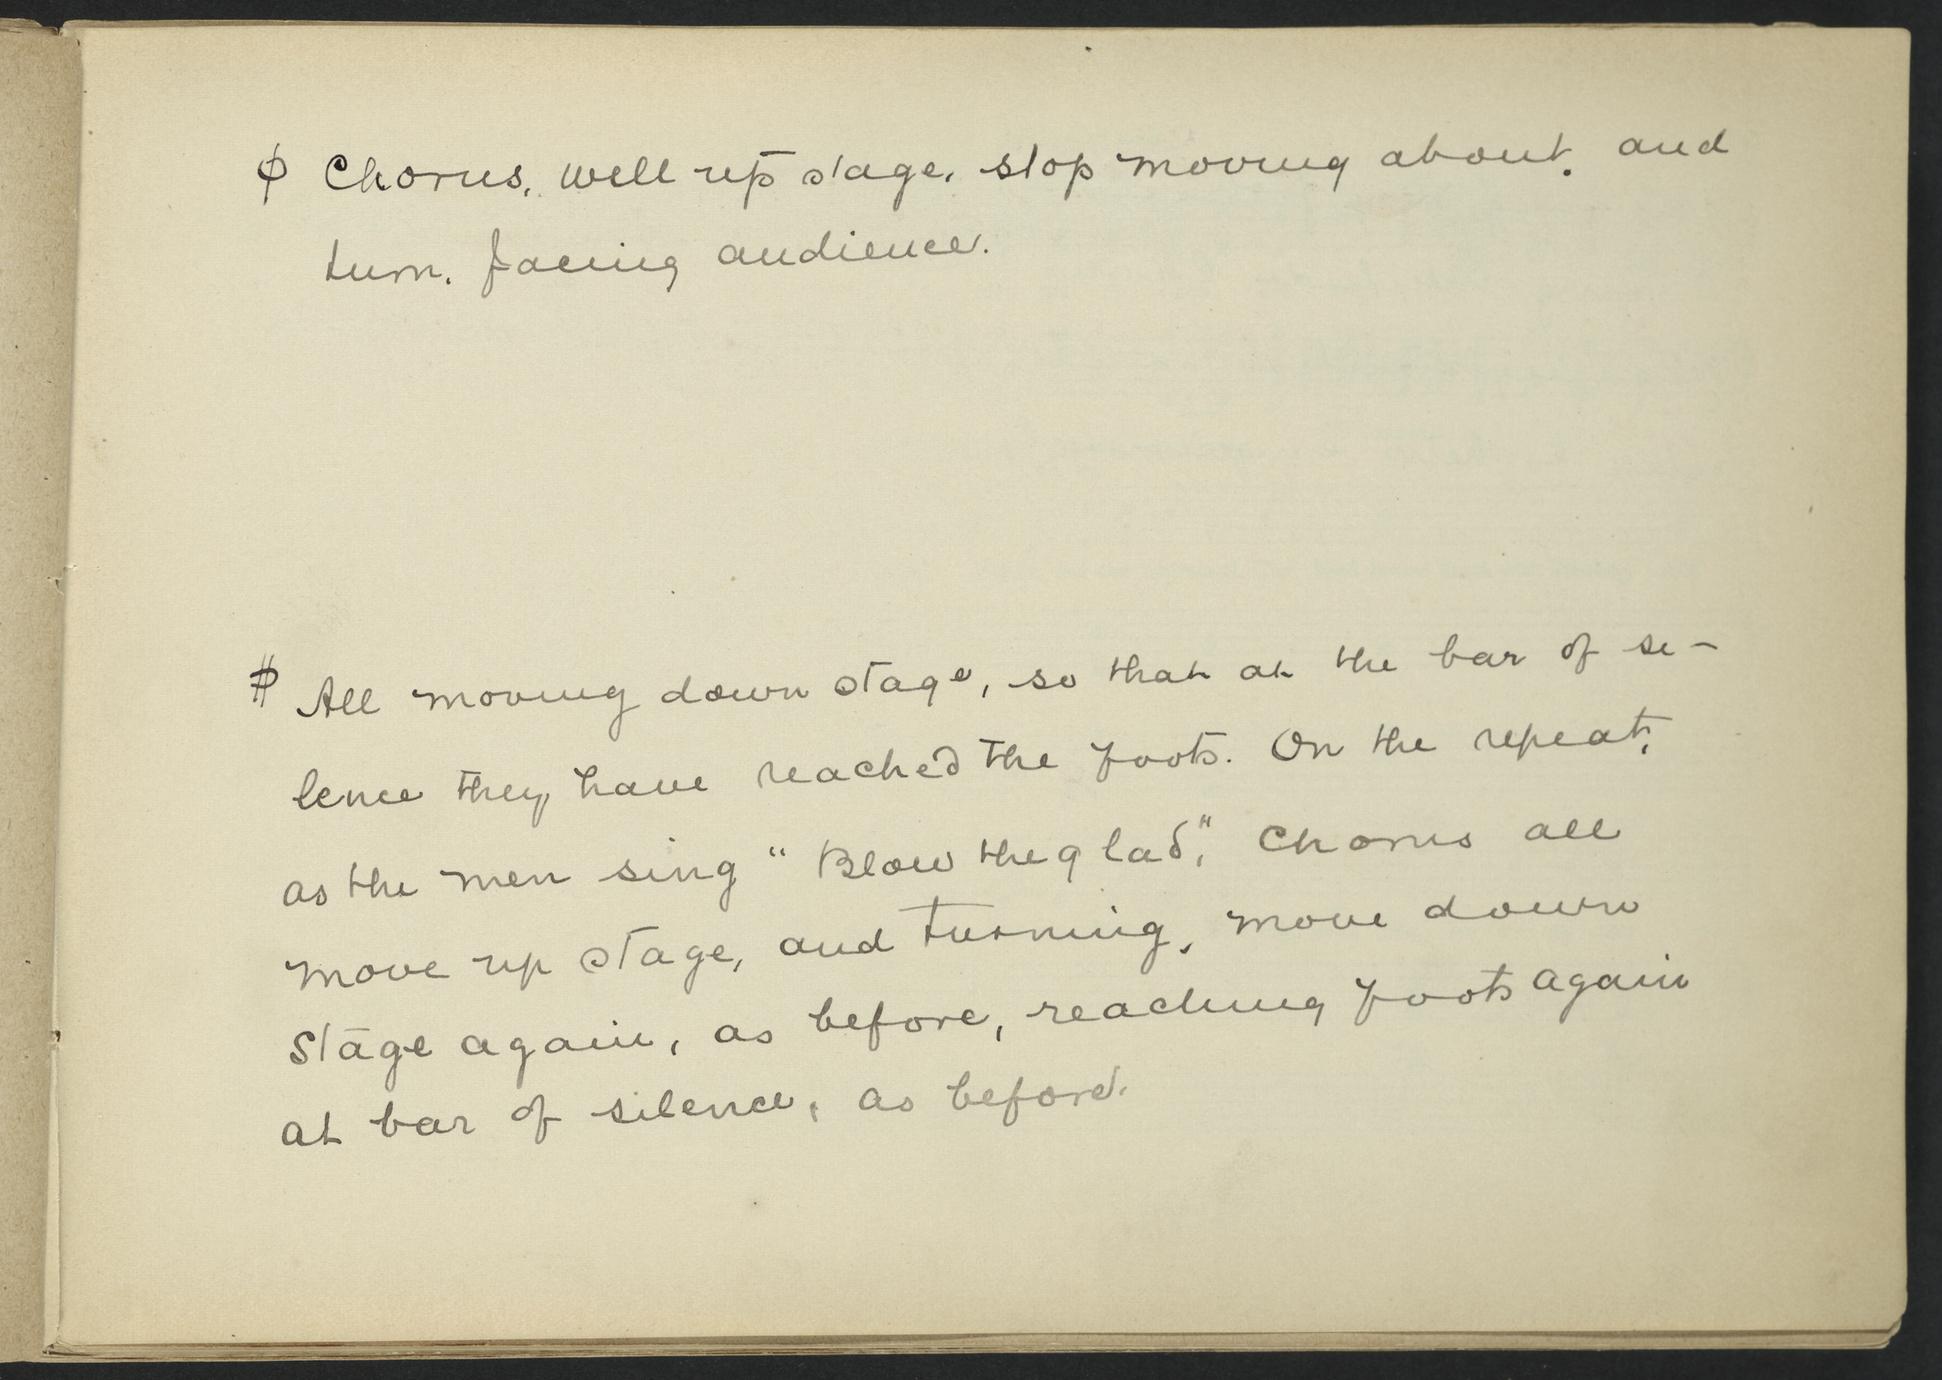 φ Chorus, well up stage, stop moving about, and
turn, facing audience.
⌗ All moving down stage, so that at the bar of si-
lence they have reached the foots. On the repeat,
as the men sing "Blow the glad," Chorus all
move up stage, and turning, move down
stage again, as before, reaching foots again
at bar of silence, as before.